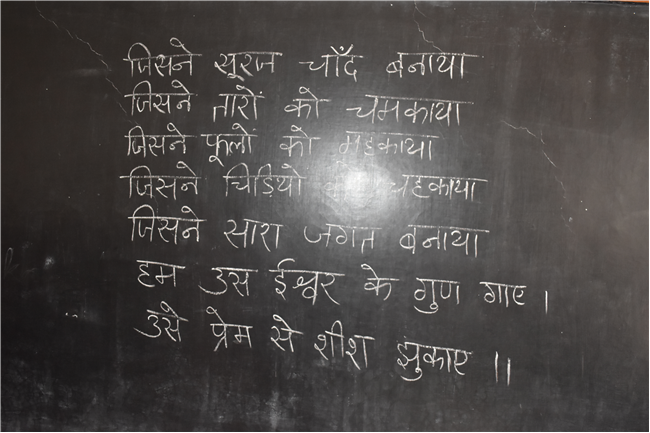 जिसने सूरज चाँद बनाया
जिसने तारों को चमकाया
जिसने फूलों को महकाया
जिसने चिड़ियो को चहकाया
जिसने सारा जगत बनाया
हम उस ईश्वर के गुण गाए ।
उसे प्रेम से शीश झुकाए ॥